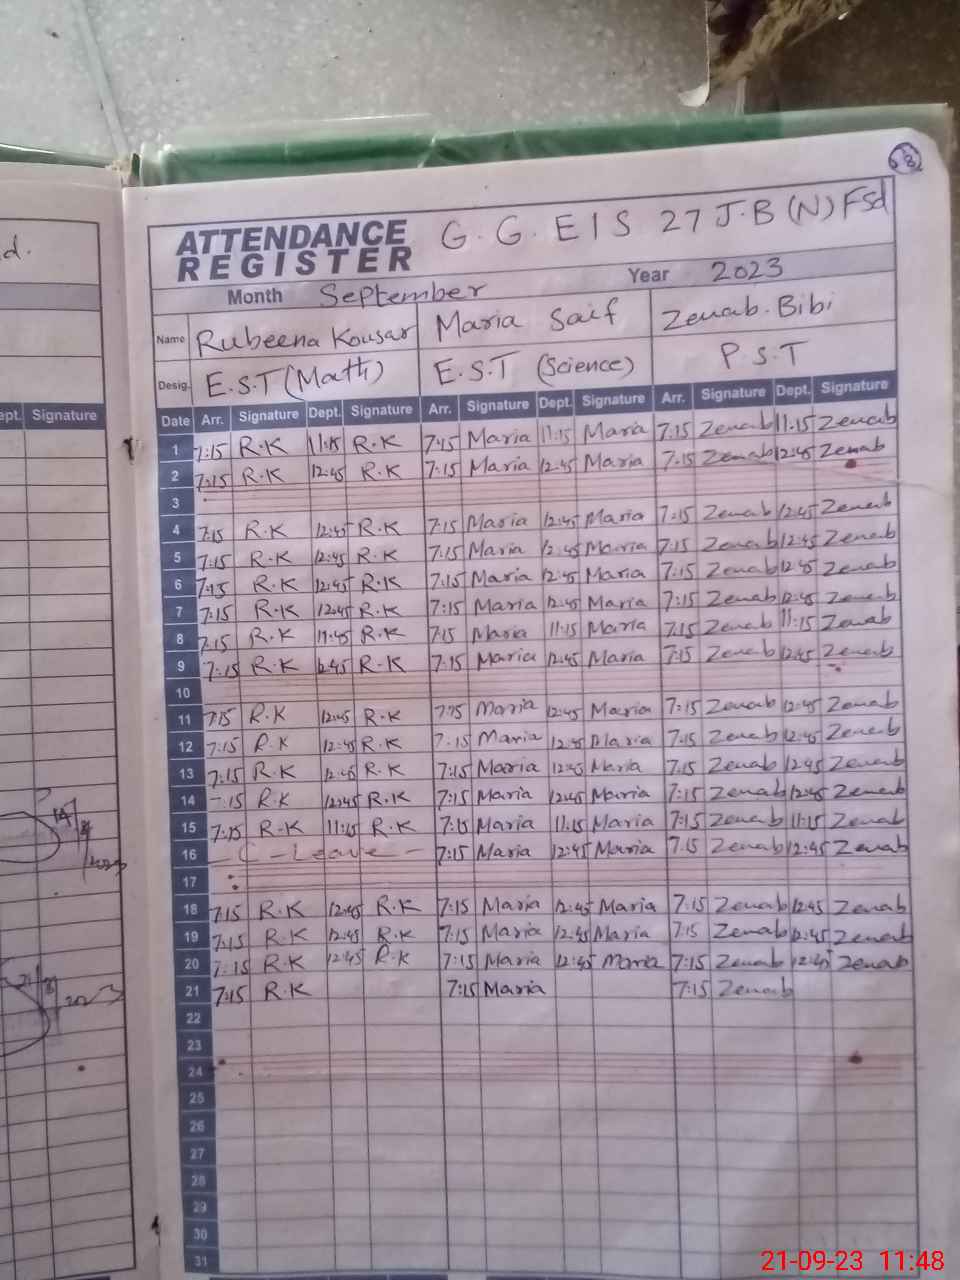 68
d.
ATTENDANCE REGISTER G.G.E I S 27 J.B (N) Fsd
Month September Year 2023
Name Rubeena Kousar Maria Saif Zenab Bibi
Desig. E.S.T (Math) E.S.T (Science) P.S.T
ept. Signature
Date Arr. Signature Dept. Signature Arr. Signature Dept. Signature Arr. Signature Dept. Signature
1 7:15 R.K 11:15 R.K 7:15 Maria 11:15 Maria 7:15 Zenab 11:15 Zenab
2 7:15 R.K 12:45 R.K 7:15 Maria 12:45 Maria 7:15 Zenab 12:45 Zenab
3
4 7:15 R.K 12:45 R.K 7:15 Maria 12:45 Maria 7:15 Zenab 12:45 Zenab
5 7:15 R.K 12:45 R.K 7:15 Maria 12:45 Maria 7:15 Zenab 12:45 Zenab
6 7:15 R.K 12:45 R.K 7:15 Maria 12:45 Maria 7:15 Zenab 12:45 Zenab
7 7:15 R.K 12:45 R.K 7:15 Maria 12:45 Maria 7:15 Zenab 12:45 Zenab
8 7:15 R.K 11:45 R.K 7:15 Maria 11:15 Maria 7:15 Zenab 11:15 Zenab
9 7:15 R.K 12:45 R.K 7:15 Maria 12:45 Maria 7:15 Zenab 12:45 Zenab
10
11 7:15 R.K 12:45 R.K 7:15 Maria 12:45 Maria 7:15 Zenab 12:45 Zenab
12 7:15 R.K 12:45 R.K 7:15 Maria 12:45 Maria 7:15 Zenab 12:45 Zenab
13 7:15 R.K 12:45 R.K 7:15 Maria 12:45 Maria 7:15 Zenab 12:45 Zenab
14 7:15 R.K 12:45 R.K 7:15 Maria 12:45 Maria 7:15 Zenab 12:45 Zenab
15 7:15 R.K 11:15 R.K 7:15 Maria 11:15 Maria 7:15 Zenab 11:15 Zenab
16 - C - Leave - 7:15 Maria 12:45 Maria 7:15 Zenab 12:45 Zenab
17
18 7:15 R.K 12:45 R.K 7:15 Maria 12:45 Maria 7:15 Zenab 12:45 Zenab
19 7:15 R.K 12:45 R.K 7:15 Maria 12:45 Maria 7:15 Zenab 12:45 Zenab
20 7:15 R.K 12:45 R.K 7:15 Maria 12:45 Maria 7:15 Zenab 12:45 Zenab
21 7:15 R.K 7:15 Maria 7:15 Zenab
22
23
24
25
26
27
28
29
30
31
21-09-23 11:48